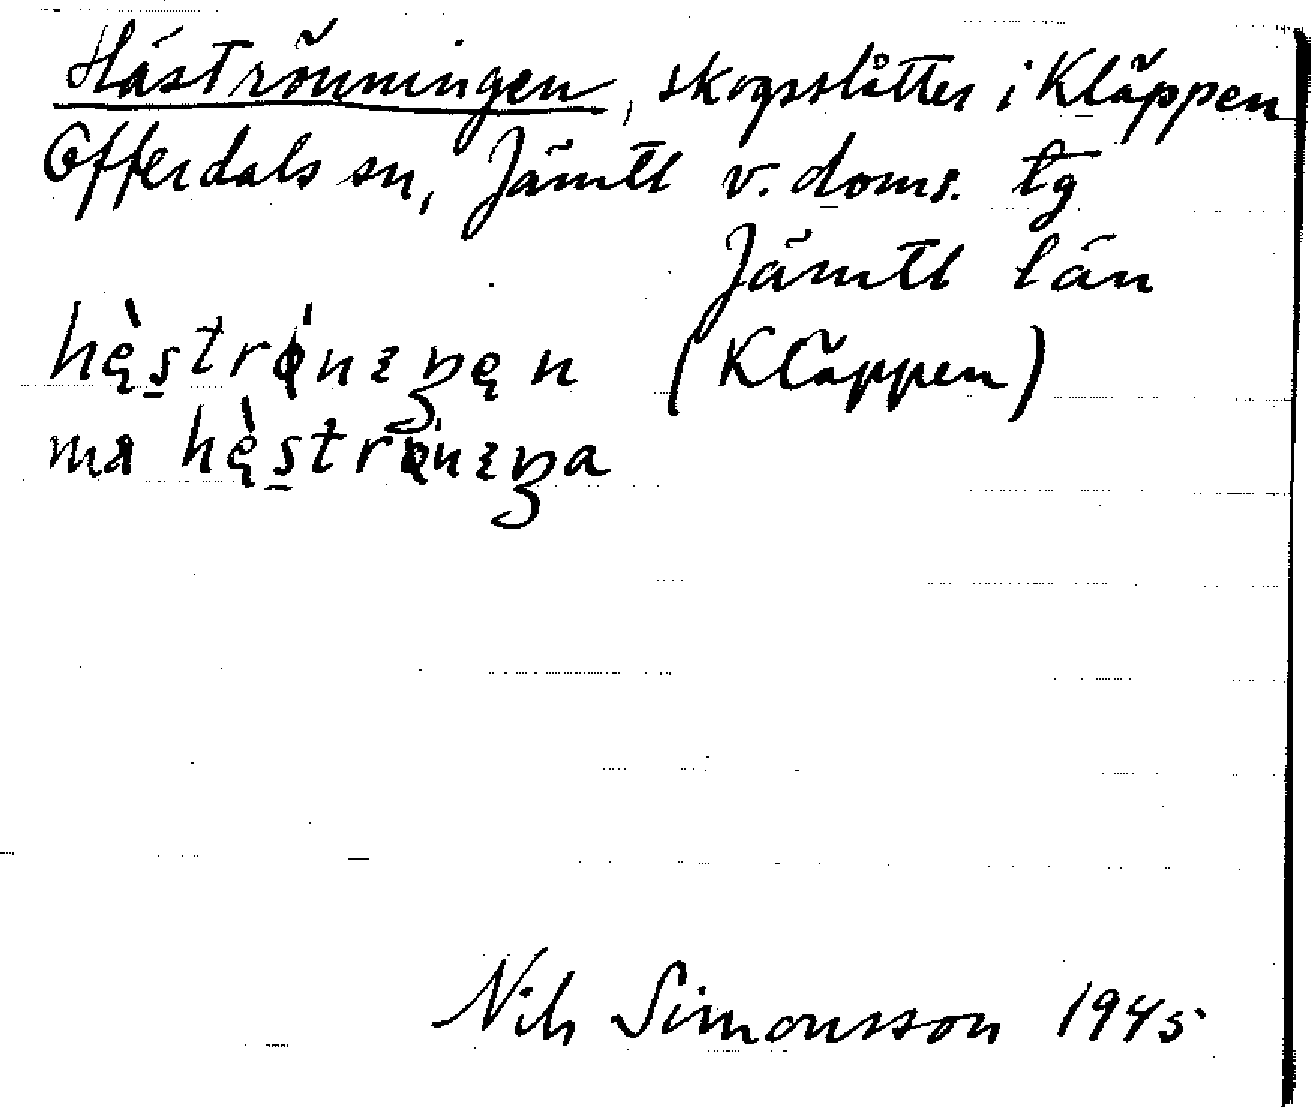 Häströnningen, skogsslåtter i Kläppen
Offerdals sn, Jämtl v. doms. tg
Jämtl län
hę̀strǿnıŋęn (Kläppen)
ma hę̀strǿnıŋa
Nils Simonsson 1945